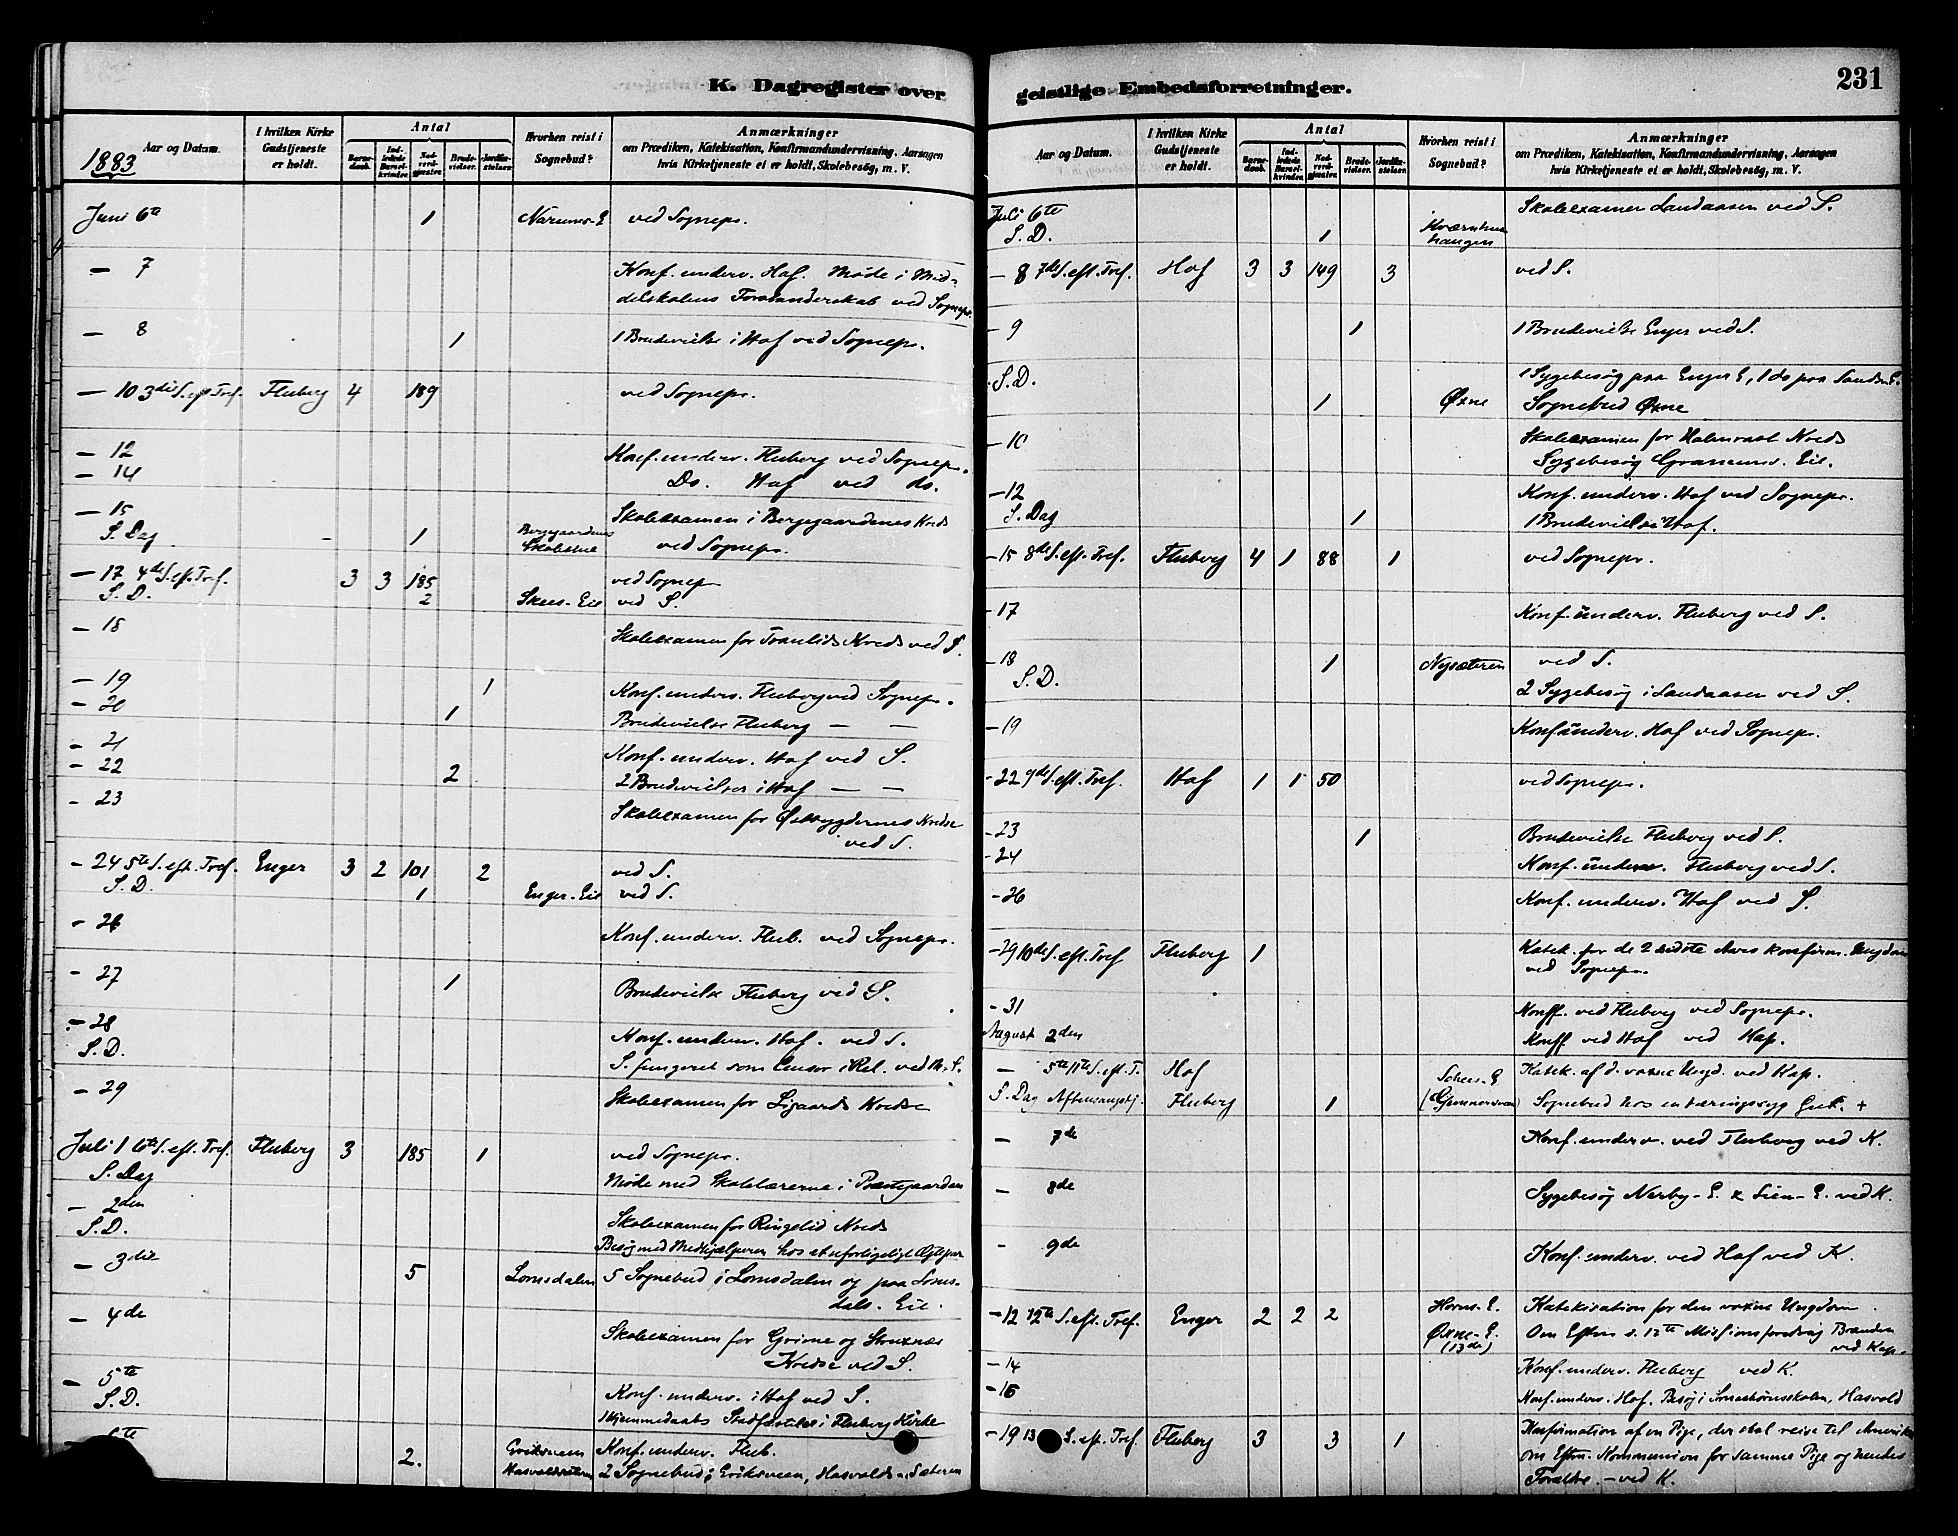 K. Dagregister over
Aar og Datum.
1883
I hvilken Kirke Gudstjeneste er holdt.
Antal
Barnedaab.
Indledede Barselkvinder.
Nadverdgjæster.
Brudevielser.
Jordfæstelser.
Hvorhen reist i Sognebud?
Anmærkninger
om Prædiken, Katekisation, Konfirmandundervisning, Aarsagen
hvis Kirketjeneste ei er holdt, Skolebesög, m. V.
Juni 6te 1 Narums-E ved Sognepr.
— 7 Konf. underv. Hof. Møde i Mid-
delskolens Forstanderskab ved Sognepr.
— 8 1 1 Brudevielse i Hof ved Sognepr.
— 10 3die S. eft. Tref. Fluberg 4 189 ved Sognepr.
— 12 Konf. underv. Fluberg ved Sognepr.
— 14 Do. Hof ved do.
— 15 Skolexamen i Bergegaardenes Kreds
S. Dag 1 Bergegaardenes Skolestue ved Sognepr.
— 17 4de S. eft. Tref. 3 3 185 ved Sognepr
S. D. 2 Skees-Eie ved S.
— 18 Skolexamen for Tranlids Kreds ved S.
— 19 1 Konf. underv. Fluberg ved Sognepr.
— 20 1 Brudevielse Fluberg — —
— 21 Konf. underv. Hof ved S.
— 22 2 2 Brudevielser i Hof — —
— 23 Skolexamen for Østbygdernes Kredse
ved S.
— 24 5te S. eft. Tref. Enger 3 2 101 2 ved S.
S. D. 1 Enger-Eie ved S.
— 26 Konf. underv. Flub. ved Sognepr.
— 27 1 Brudevielse Fluberg ved S.
— 28 Konf. underv. Hof. ved S.
S. D. S. fungeret som Censor i Rel. ved M. S.
— 29 Skolexamen for Ligaards Kredse
Juli 1 6te S. eft. Tref. Fluberg 3 185 1 ved Sognepr.
S. Dag Møde med Skolelærerne i Præstegaarden
— 2den Skolexamen for Ringelid Kreds
S. D. Besøg med Medhjælperen hos et uforligeligt Ægtepar
— 3die 5 Lomsdalen 5 Sognebud i Lomsdalen og paa Loms-
dals. Eie.
— 4de Skolexamen for Grime og
Kredse ved S.
— 5te Konf. underv. i Hof ved S.
S. D. 1 Hjemmedaabs Stadfæstelse i Fluberg Kirke
Eriksveen Konf. underv. Flub.
2. Hasvoldsæteren 2 Sognebud i Eriksveen, Hasvolds-Sæteren
geistlige Embedsforretninger.
231
Aar og Datum.
I hvilken Kirke Gudstjeneste er holdt.
Antal
Barnedaab.
Indledede Barselkvinder.
Nadverdgjæster.
Brudevielser.
Jordfæstelser.
Hvorhen reist i Sognebud?
Anmærkninger
om Prædiken, Katekisation, Konfirmandundervisning, Aarsagen
hvis Kirketjeneste ei er holdt, Skolebesög, m. V.
Juli 6te Skolexamen Landaasen ved S.
S. D. 1
— 8 7de S. eft. Tref. Hof 3 3 149 3 ved S.
— 9 1 1 Brudevielse Enger ved S.
S. D. 1 Sygebesøg paa Enger E, 1 do paa Sands E.
1 Øxne Sognebud Øxne
— 10 Skolexamen for Holmraat Kreds
Sygebesøg Granums. Eie.
— 12 Konf. underv. Hof ved Sognepr.
S. Dag 1 1 Brudevielse i Hof.
— 15 8de S. eft. Tref. Fluberg 4 1 88 1 ved Sognepr.
— 17 Konf. underv. Fluberg ved S.
— 18 1 Nysæteren ved S.
S. D. 2 Sygebesøg i Landaasen ved S.
— 19 Konf underv. Hof ved Sognepr.
— 22 9de S. eft. Tref. Hof 1 1 50 ved Sognepr.
— 23 1 Brudevielse Fluberg ved S.
— 24 Konf. underv. Fluberg ved S.
— 26 Konf. underv. Hof ved S.
— 29 10de S. eft. Tref Fluberg 1 Katek. for de 2 sidste Aars konfirm. Ungdom
ved Sognepr.
— 31 Konff. ved Fluberg ved Sognepr.
August 2den Konff ved Hof ved Kap.
— 5te 11te S. eft. T. Hof Katek. af d. voxne Ungd. ved Kap.
S. Dag Aftensangstj. Fluberg 1 Sognebud hos en tæringssyg
— 7de Konf. underv. ved Fluberg ved K.
— 8de Sygebesøg Nerby-E. & Lien-E. ved K.
— 9de Konf. underv. ved Hof ved K.
— 12 12te S. eft. Tref. Enger 2 2 2 Horns-E. Katekisation for den voxne Ungdom.
Øxne-E. (13de) Om Efterm. d. 12te Missionsforedrag Branden
ved Kap.
— 14 Konf. underv. Fluberg ved K.
— 16 Konf. underv. Hof. Besøg i Smaabørnsskolen, Hasvold
— 19 13 S. eft. Tref. Fluberg 3 3 1 Konfirmation af en Pige, der skal reise til Amerika
Om Efterm. Kommunion for samme Pige og hendes
Forældre. — ved K.